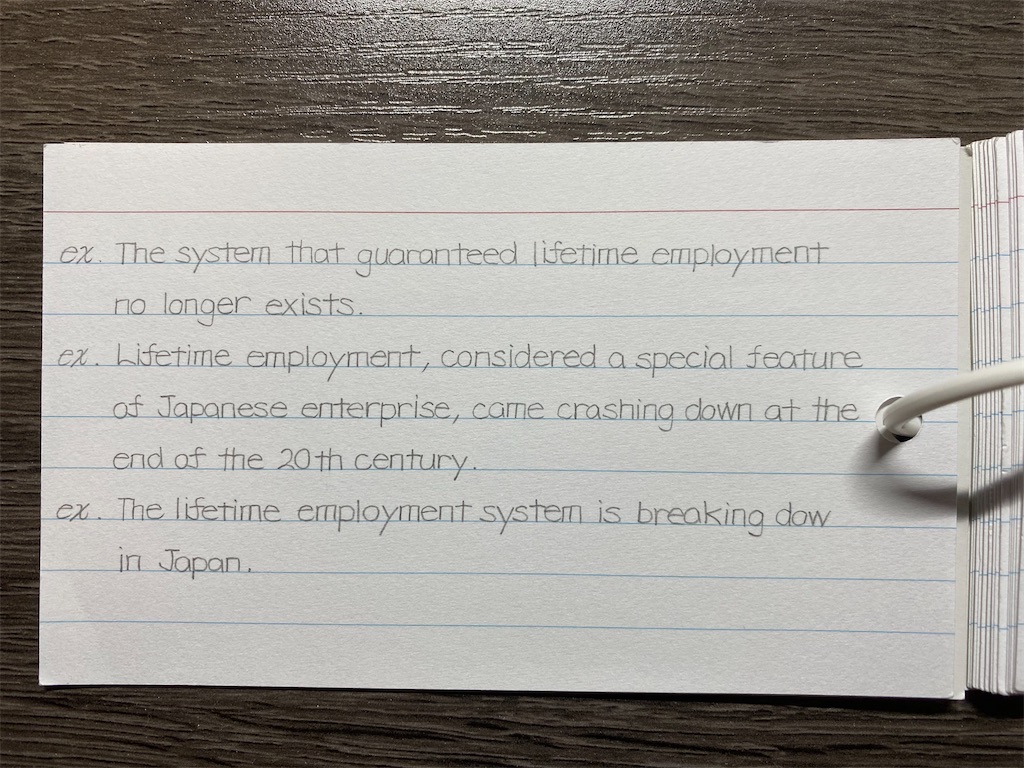 ex. The system that guaranteed lifetime employment
no longer exists.
ex. Lifetime employment, considered a special feature
of Japanese enterprise, came crashing down at the
end of the 20th century.
ex. The lifetime employment system is breaking dow
in Japan.